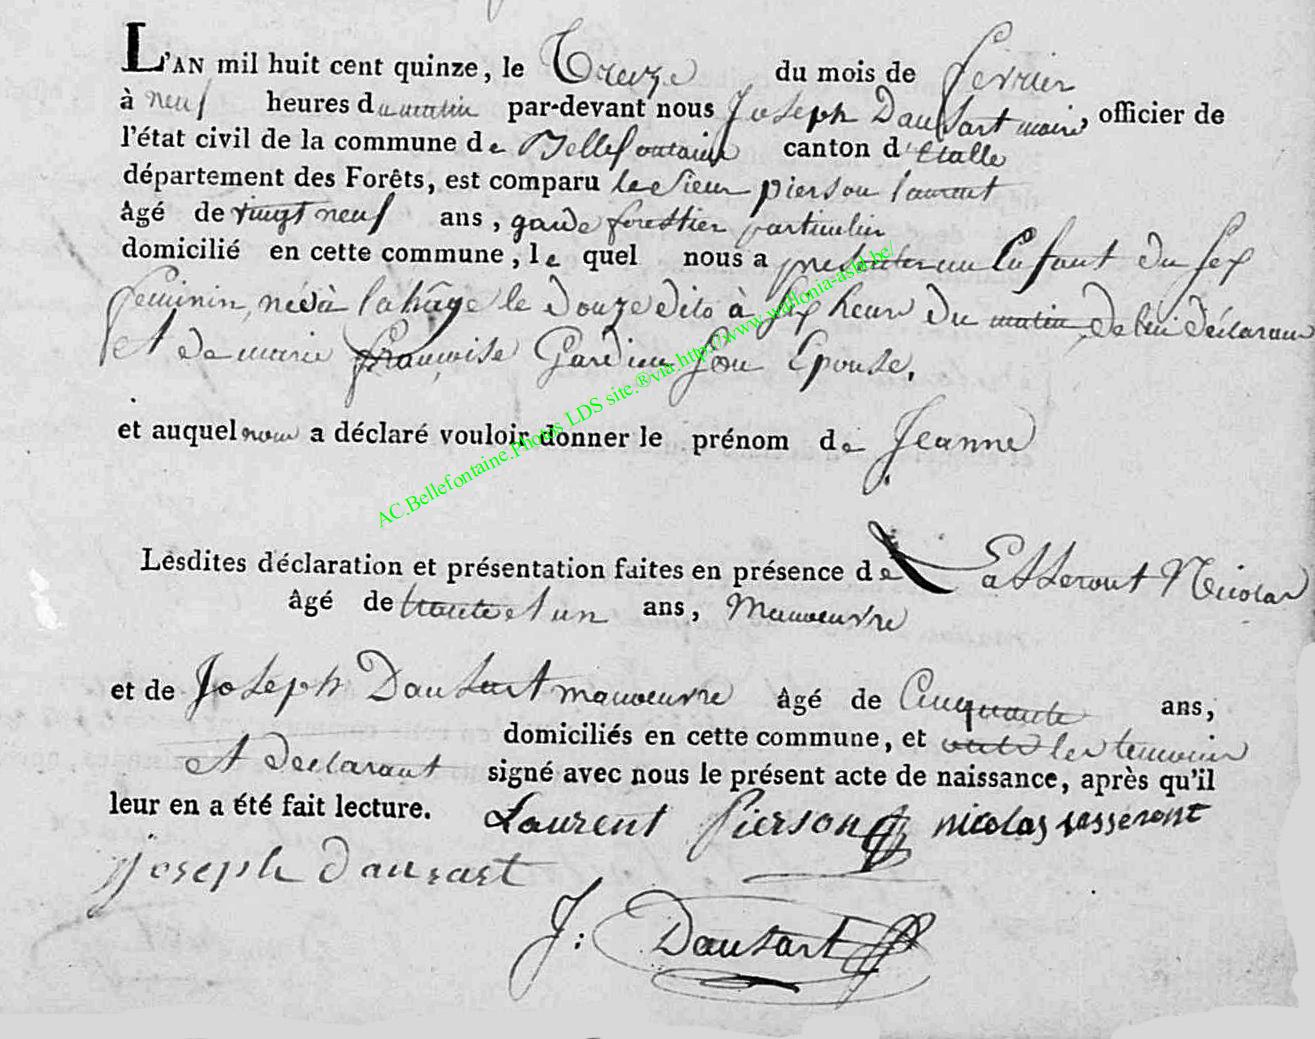 L'AN mil huit cent quinze, le Treize du mois de fevrier
à neuf heures du matin par-devant nous Joseph Dausart maire, officier de
l'état civil de la commune de Bellefontaine canton d'Etalle
département des Forêts, est comparu le Sieur pierson laurent
âgé de vingt neuf ans, garde forestier particulier
domicilié en cette commune, le quel nous a presenter un Enfant du sex
feminin, née à lahâge le douze dito à six heure du matin de lui déclarant
et de marie françoise Gardien son Epouse,
et auquel nous a déclaré vouloir donner le prénom de Jeanne
AC.Bellefontaine.Photos LDS site.®via.http://www.wallonia-asbl.be/
Lesdites déclaration et présentation faites en présence de Nicolas
âgé de trente et un ans, Manoeuvre
et de Joseph Dausart manoeuvre âgé de Cinquante ans,
domiciliés en cette commune, et les temoin
et declarant signé avec nous le présent acte de naissance, après qu'il
leur en a été fait lecture. Laurent Pierson nicolas
joseph dausart
J: Dausart